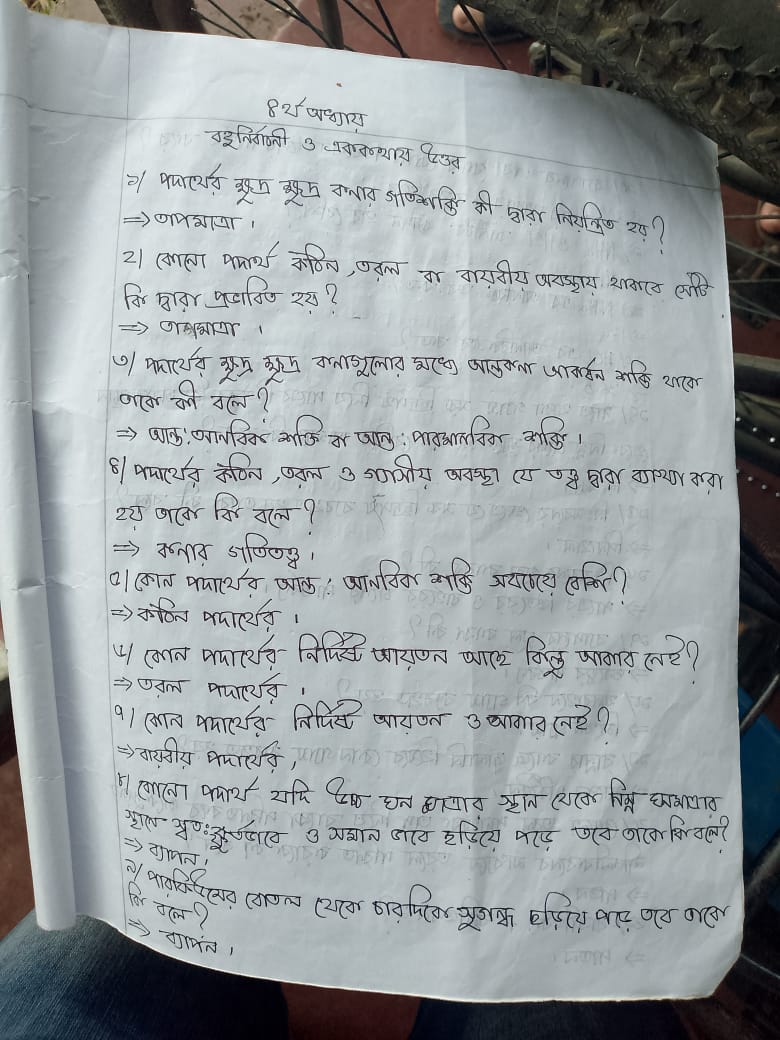 ৪র্থ অধ্যায়
বহুনির্বাচনী ও এককথায় উত্তর
১/ পদার্থের ক্ষুদ্র ক্ষুদ্র কনার গতিশক্তি কী দ্বারা নিয়ন্ত্রিত হয়?
=> তাপমাত্রা।
২/ কোনো পদার্থ কঠিন, তরল বা বায়বীয় অবস্থায় থাকবে সেটি
কি দ্বারা প্রভাবিত হয়?
=> তাপমাত্রা।
৩/ পদার্থের ক্ষুদ্র ক্ষুদ্র কনাগুলোর মধ্যে আন্তকনা আকর্ষন শক্তি থাকে
তাকে কী বলে?
=> আন্ত:আনবিক শক্তি বা আন্ত:পারমানবিক শক্তি।
৪/ পদার্থের কঠিন, তরল ও গ্যাসীয় অবস্থা যে তত্ত্ব দ্বারা ব্যাখ্যা করা
হয় তাকে কি বলে?
=> কনার গতিতত্ত্ব।
৫/ কোন পদার্থের আন্ত: আনবিক শক্তি সবচেয়ে বেশি?
=> কঠিন পদার্থের।
৬/ কোন পদার্থের নির্দিষ্ট আয়তন আছে কিন্তু আকার নেই?
=> তরল পদার্থের।
৭/ কোন পদার্থের নির্দিষ্ট আয়তন ও আকার নেই?
=> বায়বীয় পদার্থের,
৮/ কোনো পদার্থ যদি উচ্চ ঘন মাত্রার স্থান থেকে নিম্ন ঘনমাত্রার
স্থানে স্বত:স্ফূর্তভাবে ও সমান ভাবে ছড়িয়ে পড়ে তবে তাকে কি বলে?
=> ব্যাপন।
৯/ পারফিউমের বোতল থেকে চারদিকে সুগন্ধ ছড়িয়ে পড়ে তবে তাকে
কি বলে?
=> ব্যাপন।